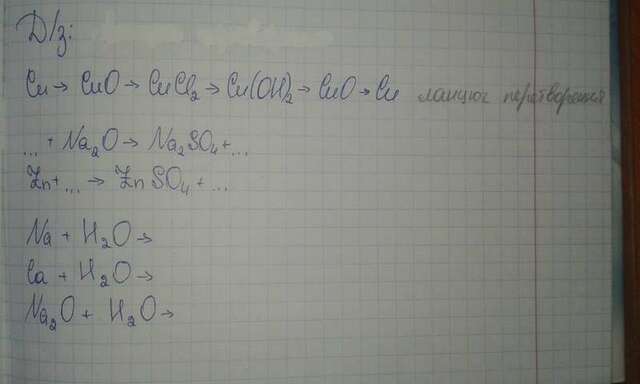 Д/з:
Cu → CuO → CuCl2 → Cu(OH)2 → CuO → Cu ланцюг перетворення
... + Na2O → Na2SO4 + ...
Zn + ... → ZnSO4 + ...
Na + H2O →
Ca + H2O →
Na2O + H2O →